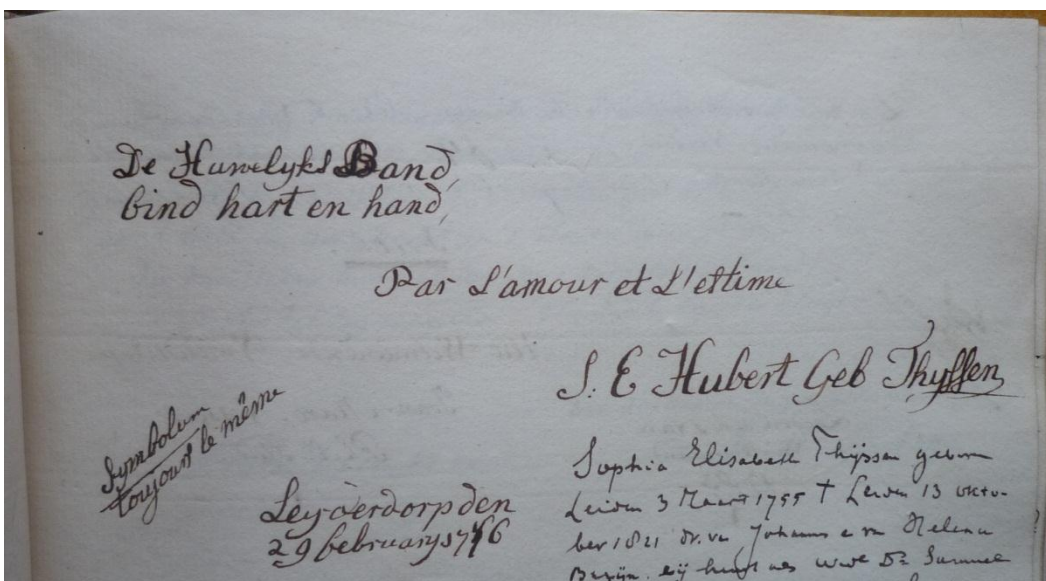 De Huwelyks Band,
bind hart en hand,
Par L'amour et L'estime
S. E Hubert Geb Thyssen
Symbolum
toujours le même
Leyderdorp den
29 february 1776
Sophia Elisabeth Thijssen geboren
Leiden 3 Maart 1755 † Leiden 13 okto-
ber 1821 dr. van Johannes en Helena
zij als Ds Samuel